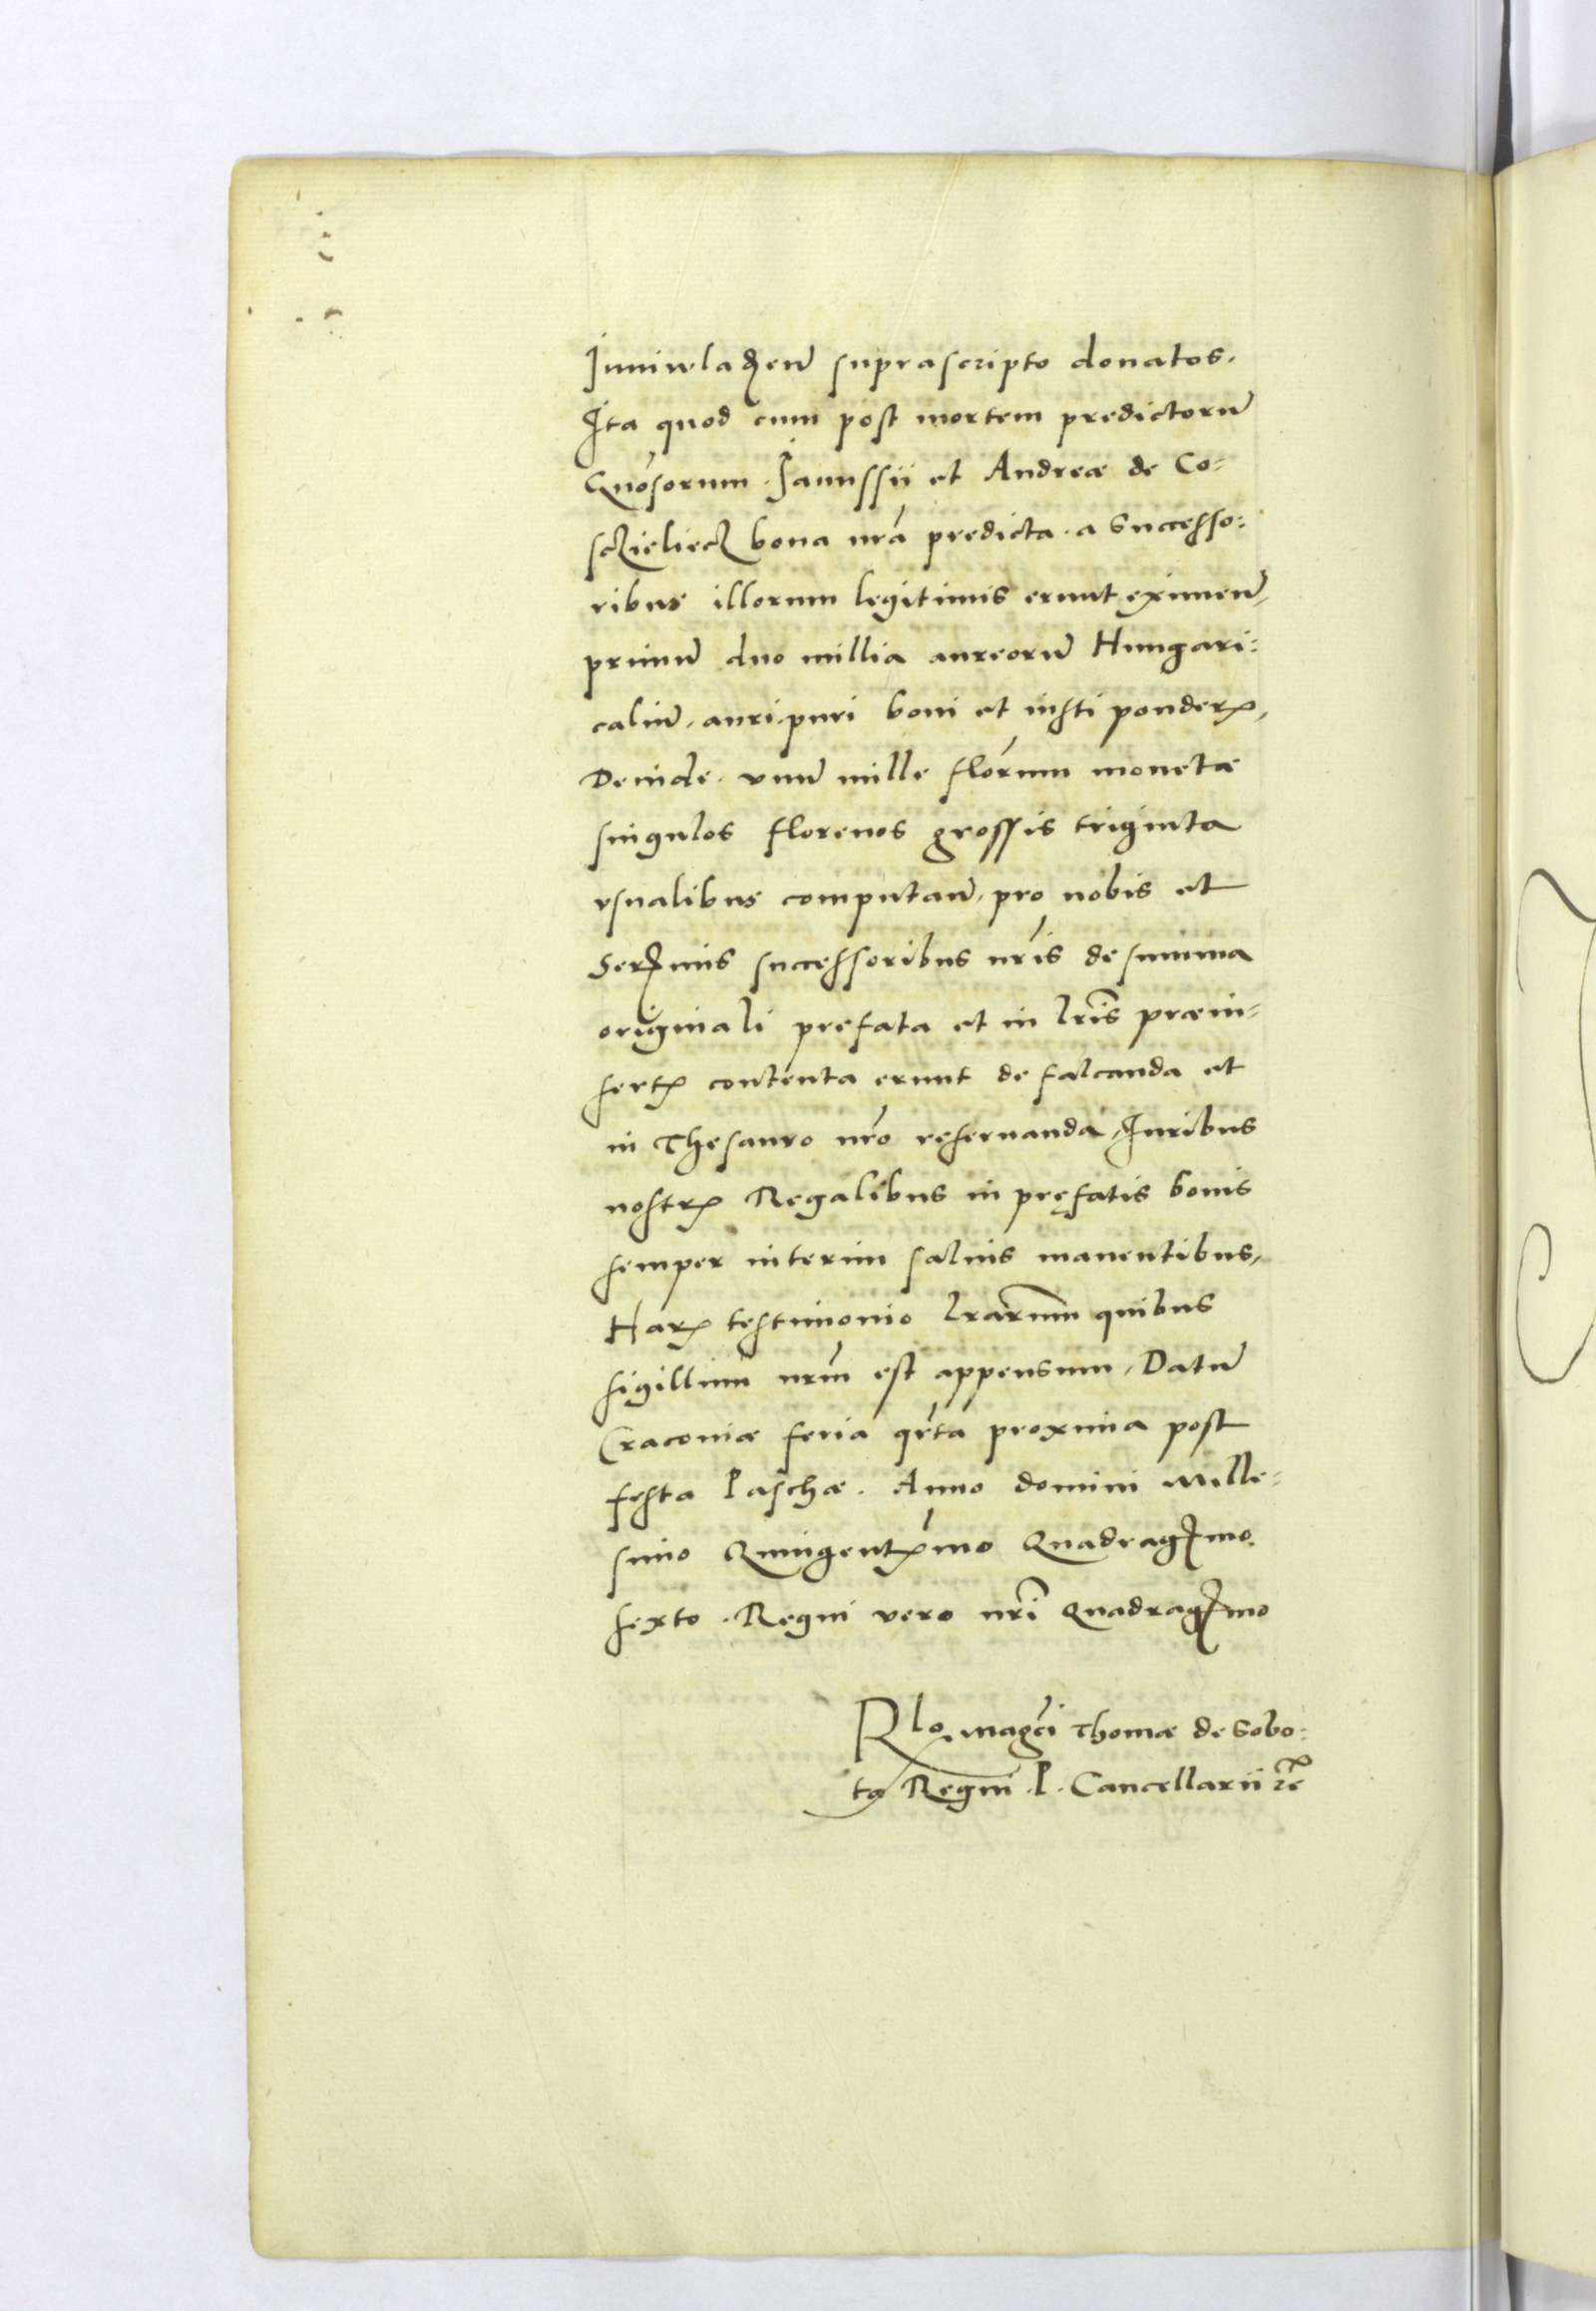 Juniwladżeñ suprascripto donatos.
Ita quod cum post mortem predictorũ
Gñosorum Janussii et Andreæ de Co-
sczieliecz bona nrã predicta a Successo-
ribus illorum legitimis erunt eximeñ,
primũ duo millia aureorũ Hungari-
caliũ, auri puri boni et iusti ponderꝭ,
Deinde vnũ mille flõrum monetæ
singulos florenos grossis triginta
vsualibus computañ, pro nobis et
Serꝭmis successoribus nrĩs de summa
originali prefata et in lrĩs præin-
sertꝭ contenta erunt defalcanda et
in Thesauro nrõ reseruanda, Iuribus
nostrꝭ Regalibus in pręfatis bonis
semper interim saluis manentibus,
Harꝭ testimonio lrarũm quibus
sigillum nrũm est appensum, Datũ
Cracoviæ feria qr̃ta proxima post
festa Paschæ. Anno domini Mille-
simo Quingentꝭmo Quadragꝭmo
sexto. Regni vero nrĩ Quadragꝭmo
Rlo magcĩ Thomæ de Sobo-
ta Regni P. Cancellarii rẽ